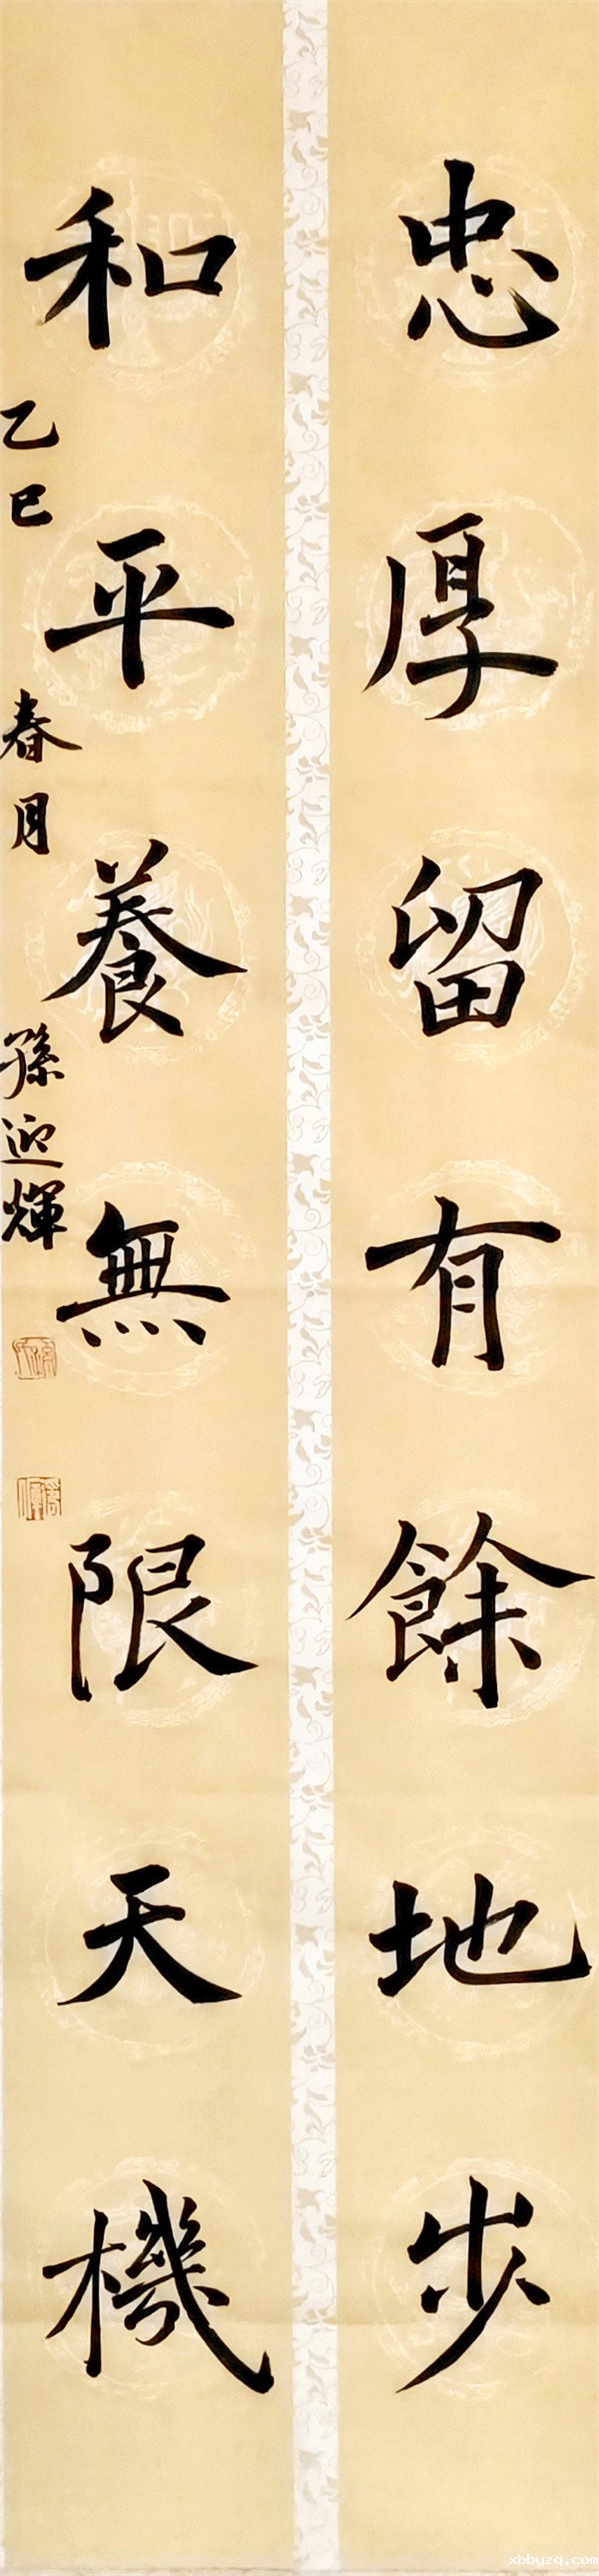 忠厚留有餘地步
和平養無限天機
乙巳春月孫迎輝
xbbyzq.com